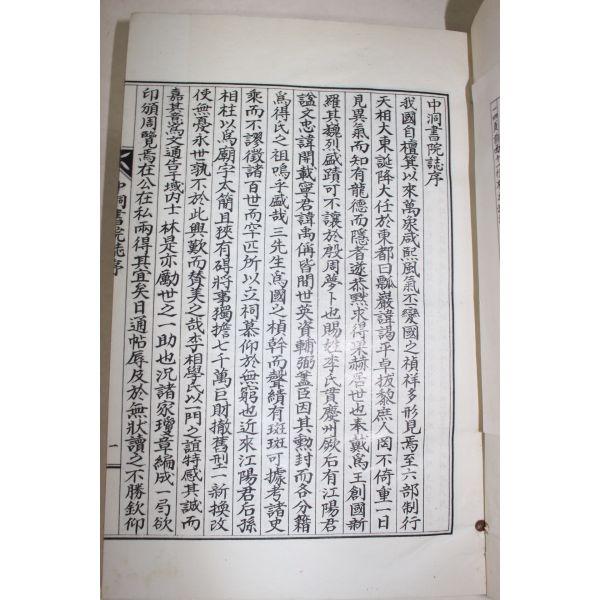 中洞書院誌序
我國自檀箕以來萬家咸熙風氣丕變國之禎祥多形見焉至六部制行
天相大東誕降大任於東都曰瓢巖諱謁平卓拔黎庶人罔不倚重一日
見異氣而知有龍德而隱者遂恭黙求得果赫居世也奉戴為王創國新
羅其巍烈盛蹟可不讓於殷周夢卜也賜姓李氏貫慶州厥后有江陽君
諡文忠諱開載寧君諱禹偁皆間世英資輔弼藎臣因其勳封而各分籍
為得氏之祖嗚乎盛哉三先生為國之楨幹而聲績有斑斑可據考諸史
乘而不謬徵諸百世而罕匹所以立祠慕仰於無窮也近來江陽君后孫
相柱以為廟宇太簡且狹有碍將事獨擔七千萬巨財撤舊型一新換改
使無憂永世孰不於此興歎而賛美之哉李相學氏以一門之誼特感其誠而
嘉其意為文通告于域内士林是亦勵世之一助也况諸家瓊章編成一局欲
印頒周覽焉在公在私兩得其宜矣日通帖辱及於無狀讀之不勝欽仰
中洞書院誌序
一